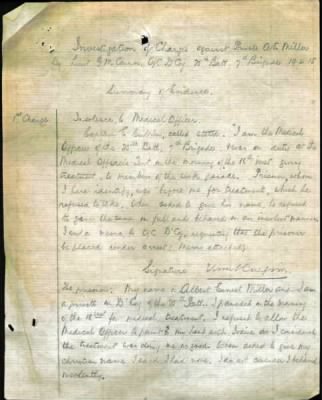 Investigation of Charge against Private A.E. Miller
By Lieut G.M. C/C D Cy. 25th Batt. 7th Brigade
Summary of Evidence.
1st Charge Insolence to Medical Officer.
Captain E. Culpin, called states: "I am the Medical
Officer of the 25th Batt. 7th Brigade. I was on duty at the
Medical Officer's Tent on the morning of the 18th inst giving
treatment to members of the sick parade. Prisoner, whom
I here identify, was before me for treatment, which he
refused to take. When asked to give his name, he refused
to give the same in full and behaved in an insolent manner.
I sent a note to O/C D Cy. requesting that the prisoner
be placed under arrest.
Signature Ernest Culpin.
The prisoner: My name is Albert Ernest Miller and I am
a private in D Cy. of the 25th Batt. I paraded on the morning
of the 18th for medical treatment. I refused to allow the
Medical Officer to paint my hand with Iodine as I considered
the treatment was doing me no good. When asked to give my
christian name I said I had none. I am not I behaved
insolently.